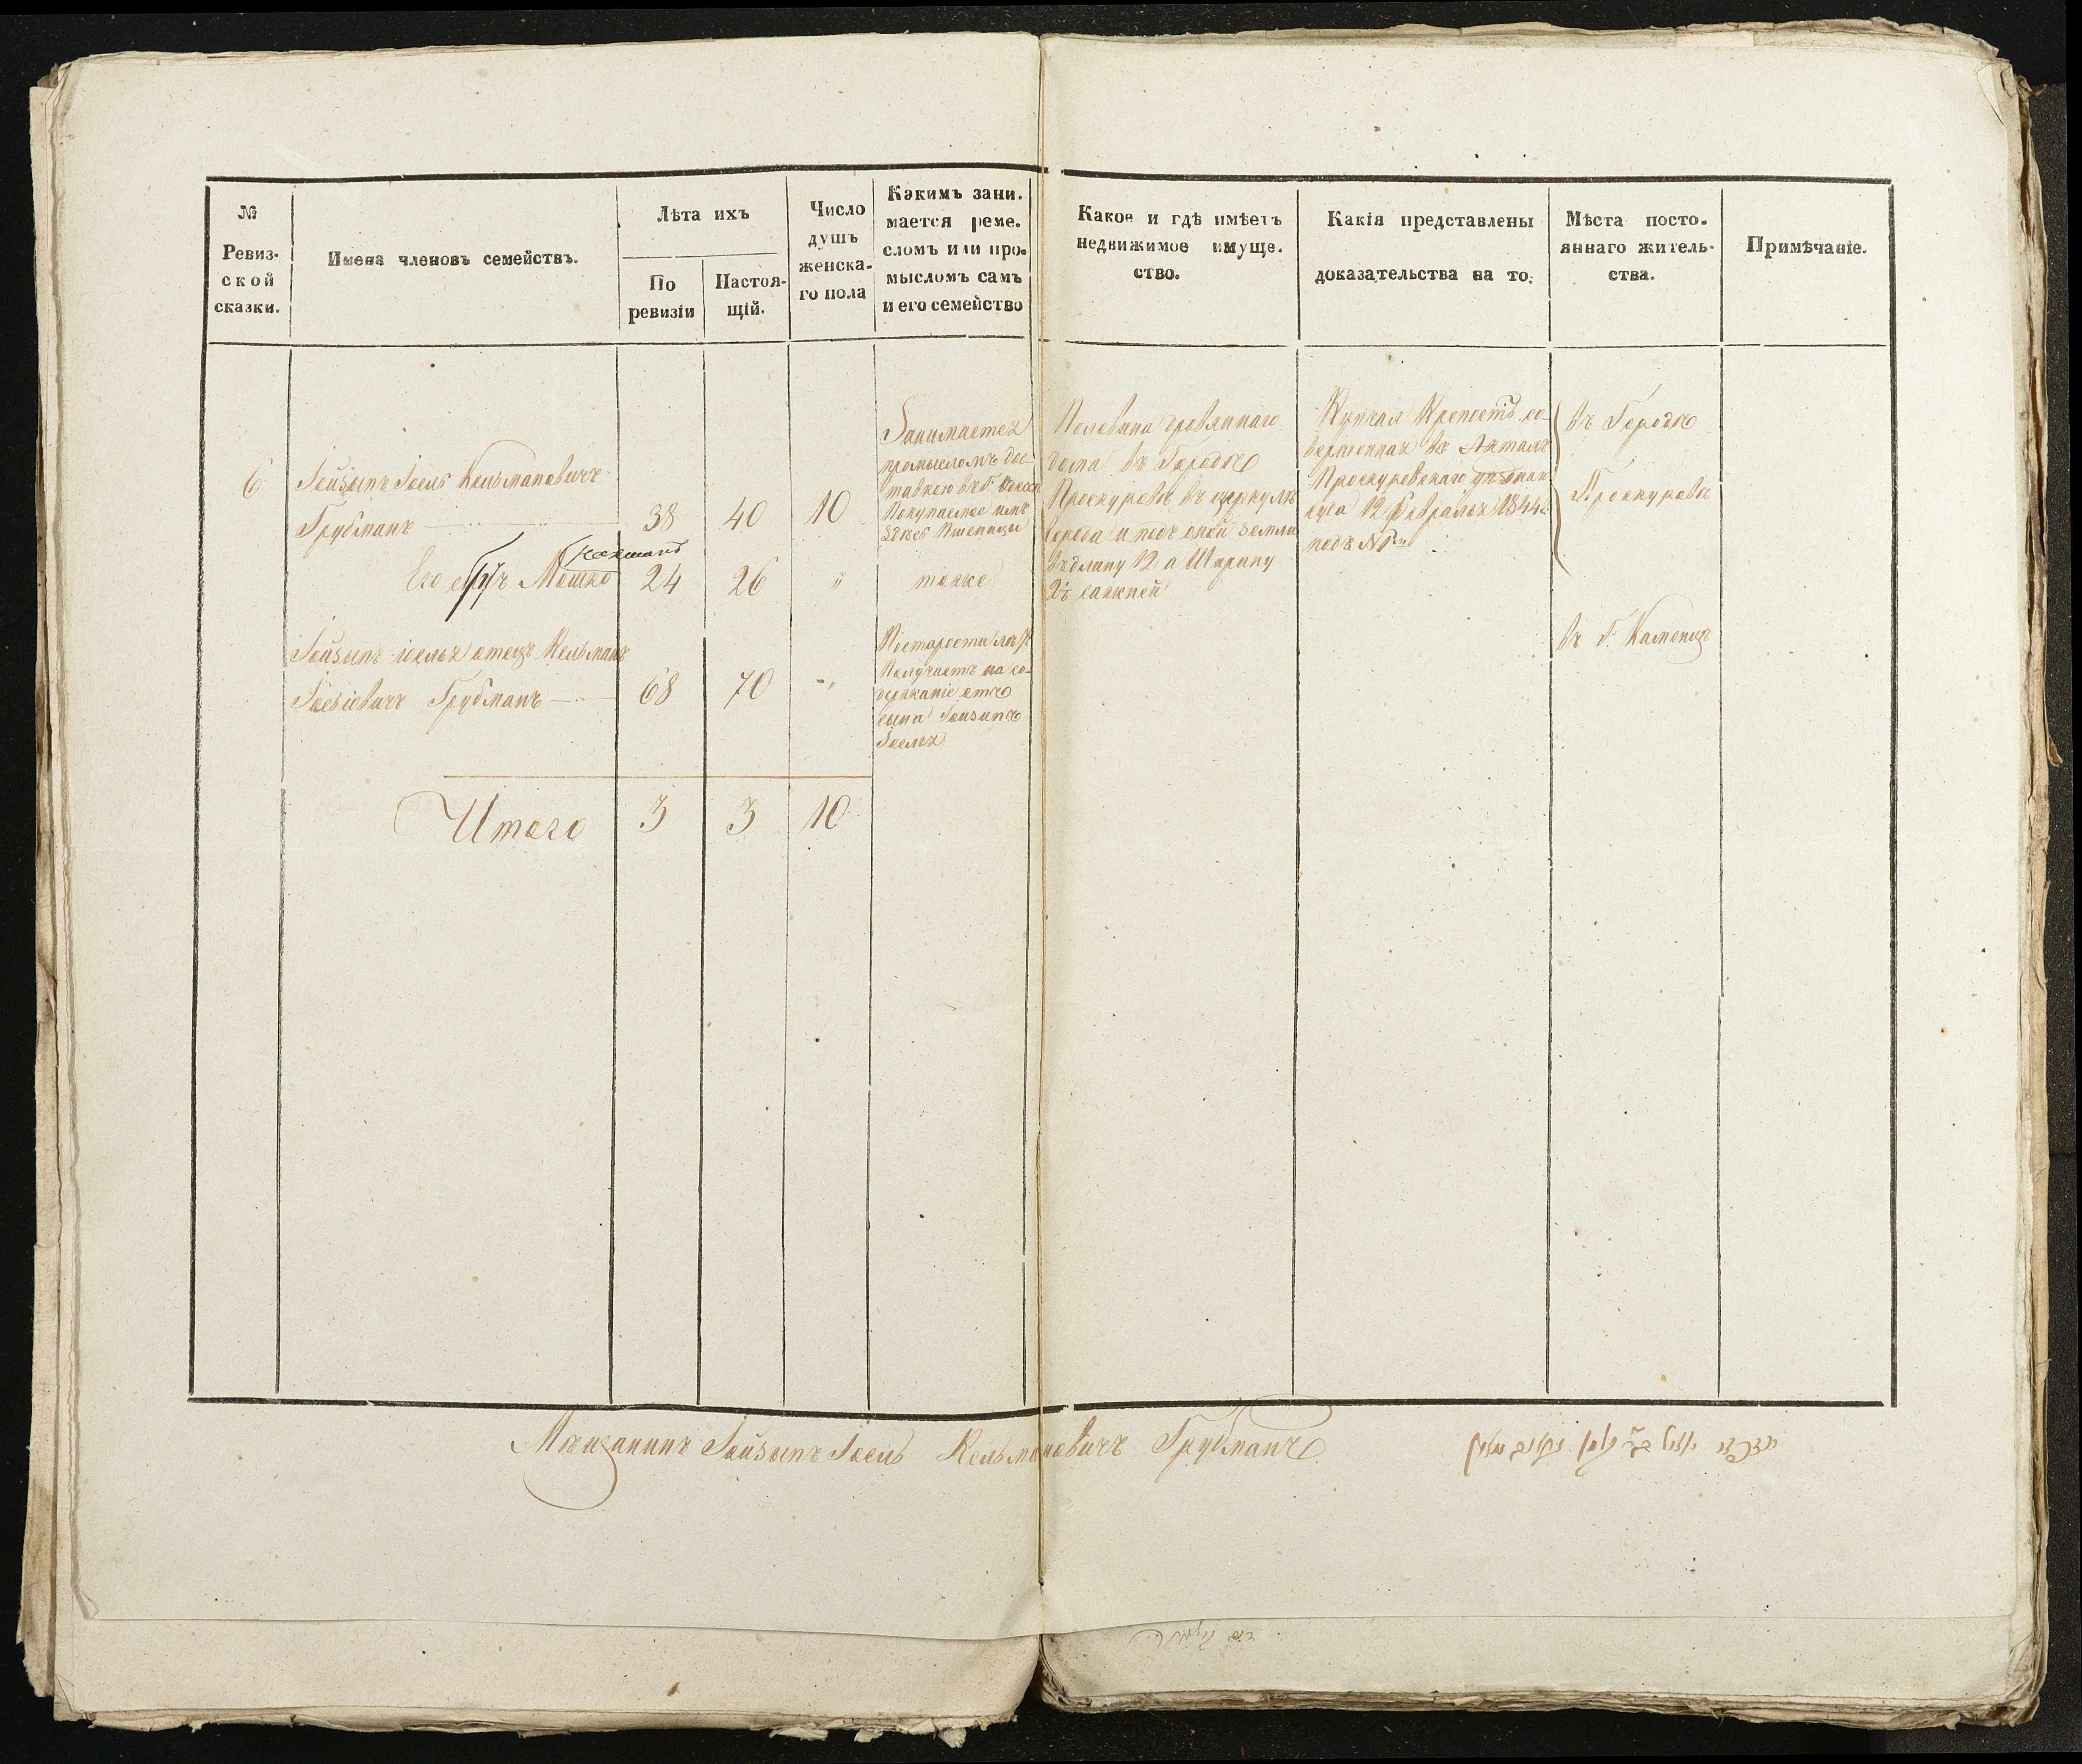 №
Ревиз-
ской
сказки.
Имена членовъ семействъ.
Лѣта ихъ
По
ревизіи
Настоя-
щій.
Число
душъ
женска-
го пола
Какимъ зани-
мается реме-
сломъ или про-
мысломъ самъ
и его семейство
Какое и гдѣ имѣетъ
недвижимое имуще-
ство.
Какія представлены
доказательства на то.
Мѣста посто-
яннаго житель-
ства.
Примѣчаніе.
6
Іойзипъ Іоель Кельмановичъ
Грубманъ
38
40
10
Занимается
промысломъ дос-
тавкою въ г. Одессу
Покупаемое имъ
здѣсь Пшеницы
Половина древлннаго
дома въ Городѣ
Проскуровѣ въ
города и подъ оной земли
въ длину 12 а Ширину
2½ сажней
Купчая Крепость со-
вершенная въ Актахъ
Проскуровскаго
суда 12 Февраля 1844 г.
подъ №
въ Городѣ
Проскуровѣ
Его Мошко
24
26
"
тоже
Іойзипъ іоеля отецъ Кельманъ
Іосіовичъ Грубманъ
68
70
"
По старости лѣтъ
Получаетъ на со-
держаніе отъ
сына Іойзипа
Іоеля
въ г. Каменцѣ
Итого
3
3
10
Мѣщанинъ Іойзипъ Іоель Кельмановичъ Грубманъ